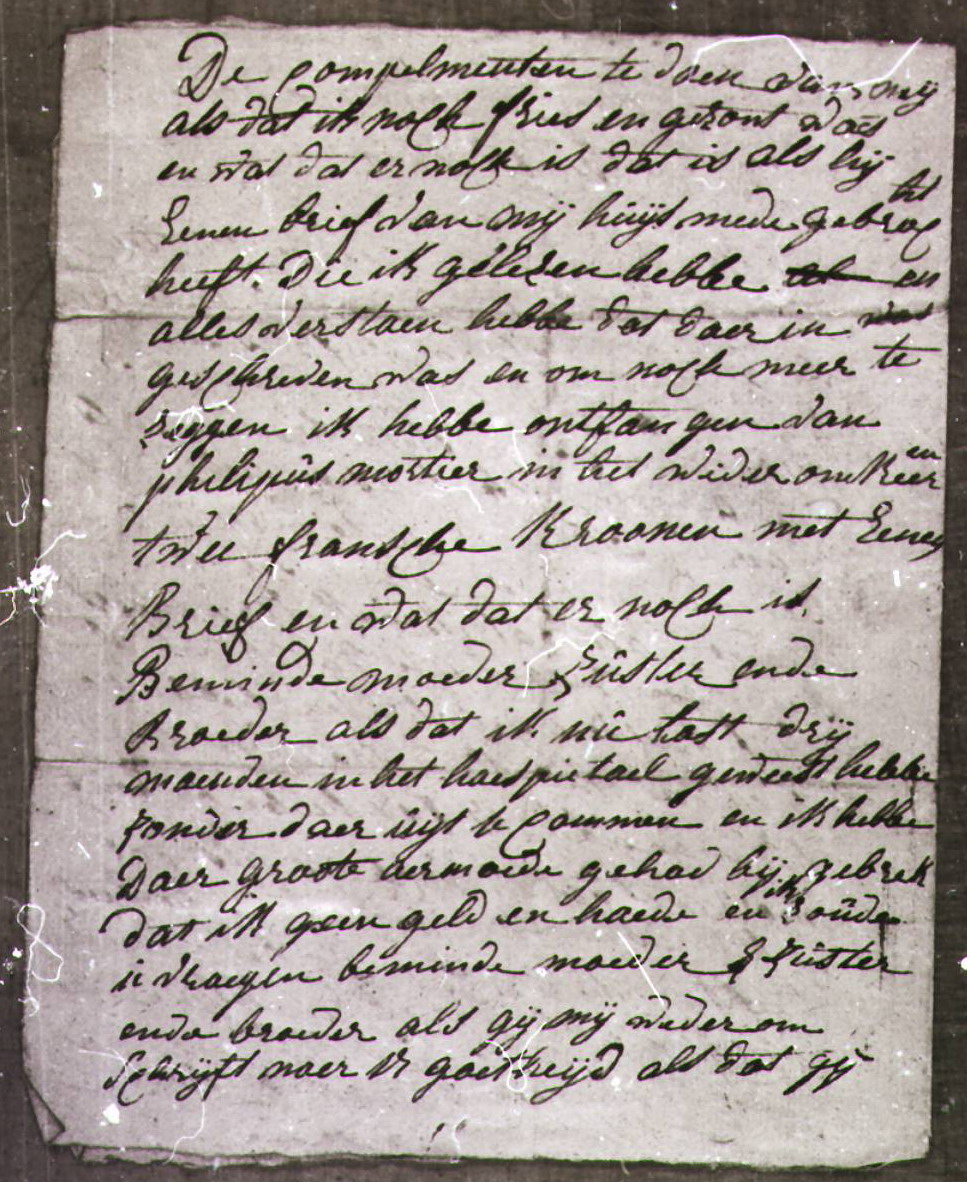 De compelmenten te doen van mij
als dat ik noch fries en gezont was
en wat dat er noch is dat is als hij
Eenen brief van mij huijs mede gebrocht
heeft. Die ik gelezen hebbe en
alles verstaen hebbe dat daer in
geschreven was en om noch meer te
zeggen ik hebbe ontfangen van
philipus mortier in het wederomkeeren
twee fransche Kroonen met Eenen
Brief en wat dat er noch is.
Beminde moeder zuster ende
Broeder als dat ik nu tast drij
maenden in het haespietael geweest hebbe
zonder daer uijt te commen en ik hebbe
Daer groote aermoede gehad bij gebrek
dat ik geen geld en haede en ik zoude
u vraegen beminde moeder zuster
ende broeder als gij mij wederom
schrijft naer U goetheijd als dat gij